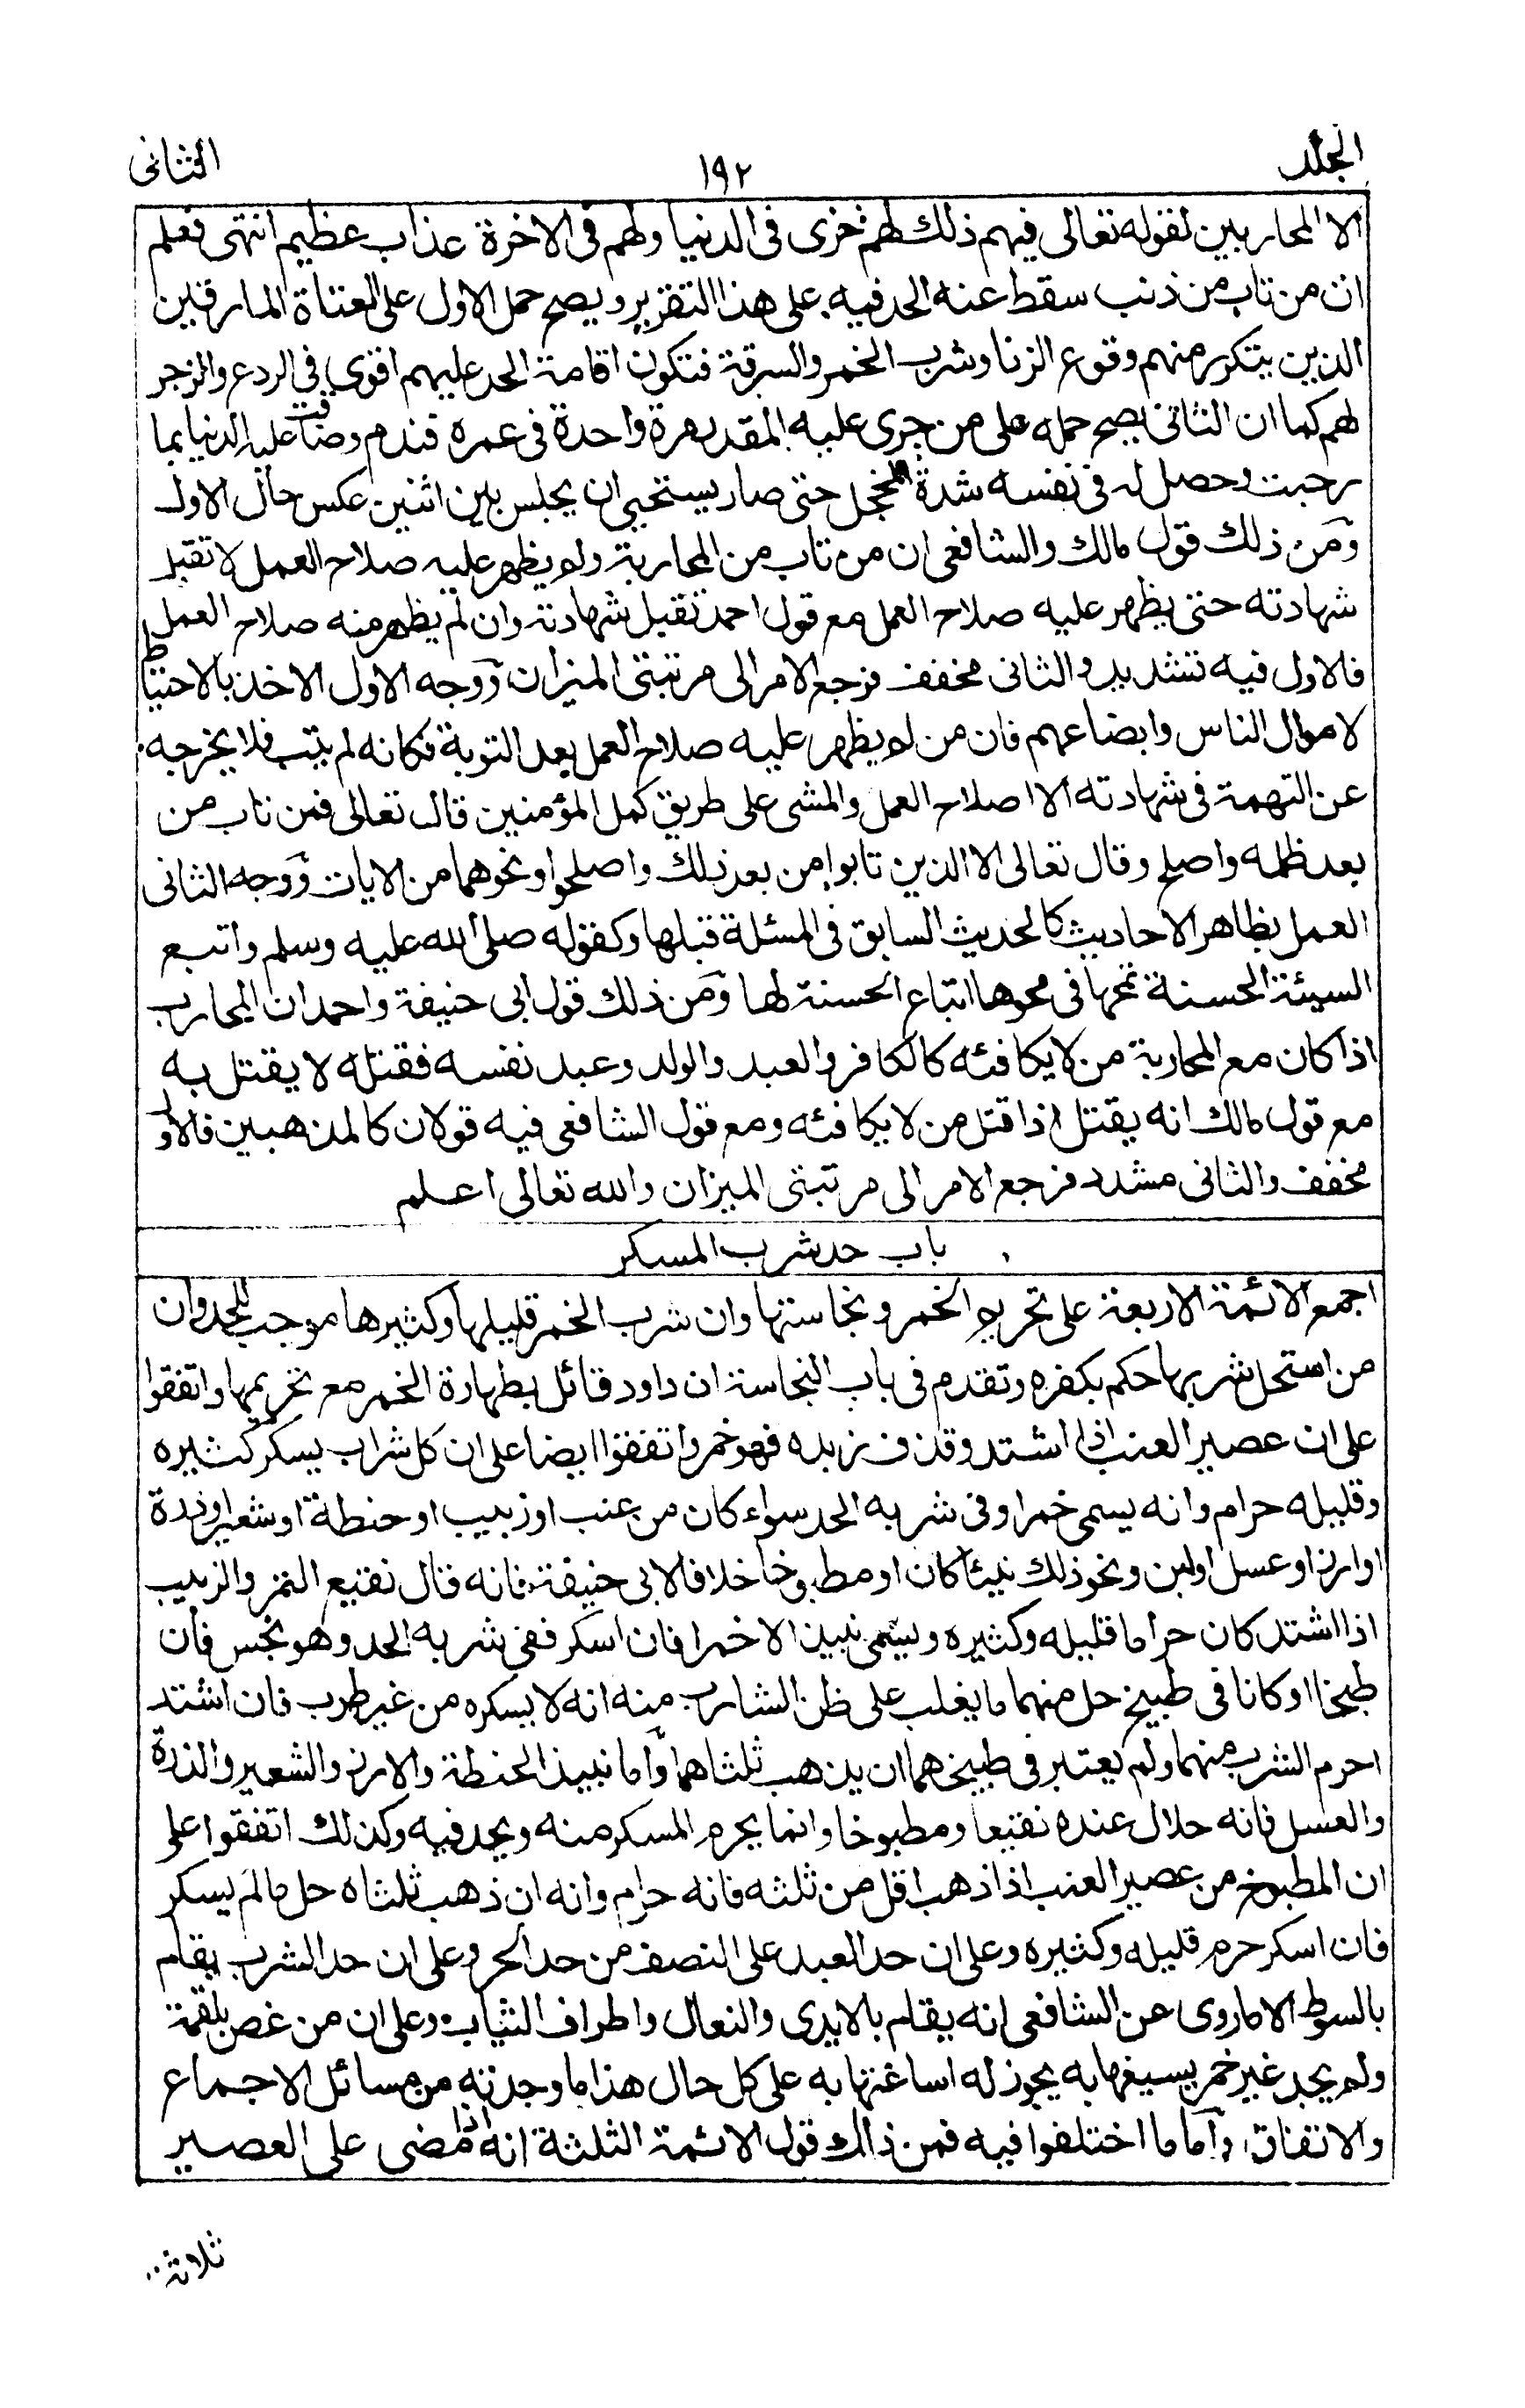 المجلد
١٩٢
الثانى
الا المحاربين لقوله تعالى فيهم ذلك لهم خزى فى الدنيا ولهم فى الاخرة عذاب عظيم انتهى فعلم
ان من تاب من ذنب سقط عنه الحد فيه على هذا التقرير ويصح حمل الاول على العتاة المارقين
الذين يتكرر منهم وقوع الزنا وشرب الخمر والسرقة فتكون اقامة الحد عليهم اقوى فى الردع والزجر
لهم كما ان الثانى يصح حمله على من جرى عليه المقدر مرة واحدة فى عمره فندم وضاقت عليه الدنيا بما
رحبت وحصل له فى نفسه شدة الخجل حتى صار يستحيى ان يجلس بين اثنين عكس حال الاول
ومن ذلك قول مالك والشافعى ان من تاب من المحاربة ولم يظهر عليه صلاح العمل لا تقبل
شهادته حتى يظهر عليه صلاح العمل مع قول احمد تقبل شهادته وان لم يظهر منه صلاح العمل
فالاول فيه تشديد والثانى مخفف فرجع الامر الى مرتبتى الميزان ووجه الاول الاخذ بالاحتياط
لاموال الناس وابضاعهم فان من لم يظهر عليه صلاح العمل بعد التوبة فكانه لم يتب فلا يخرجه
عن التهمة فى شهادته الا اصلاح العمل والمشى على طريق كمل المؤمنين قال تعالى فمن تاب من
بعد ظلمه واصلح وقال تعالى الا الذين تابوا من بعد ذلك واصلحوا ونحوهما من الايات ووجه الثانى
العمل بظاهر الاحاديث كالحديث السابق فى المسئلة قبلها وكقوله صلى الله عليه وسلم واتبع
السيئة الحسنة تمحها فى محوها اتباع الحسنة لها ومن ذلك قول ابى حنيفة واحمد ان المحارب
اذا كان مع المحاربة من لا يكافئه كالكافر والعبد والولد وعبد نفسه فقتله لا يقتل به
مع قول مالك انه يقتل اذا قتل من لا يكافئه ومع قول الشافعى فيه قولان كالمذهبين فالاول
مخفف والثانى مشدد فرجع الامر الى مرتبتى الميزان والله تعالى اعلم
باب حد شرب المسكر
اجمع الائمة الاربعة على تحريم الخمر ونجاستها وان شرب الخمر قليلها وكثيرها موجب للحد وان
من استحل شربها حكم بكفره وتقدم فى باب النجاسة ان داود قائل بطهارة الخمر مع تحريمها واتفقوا
على ان عصير العنب اذا اشتد وقذف زبده فهو خمر واتفقوا ايضا على ان كل شراب يسكر كثيره
وقليله حرام وانه يسمى خمرا وفى شربه الحد سواء كان من عنب او زبيب او حنطة او شعير او ذرة
او ارز او عسل او لبن ونحو ذلك نيئا كان او مطبوخا خلافا لابى حنيفة فانه قال نقيع التمر والزبيب
اذا اشتد كان حراما قليله وكثيره ويسمى نبيذا لا خمرا فان اسكر ففى شربه الحد وهو نجس فان
طبخا او كانا فى طبيخ حل منهما ما يغلب على ظن الشارب منه انه لا يسكره من غير طرب فان اشتد
احرم الشرب منهما ولم يعتبر فى طبيخهما ان يذهب ثلثاهما وأما نبيذ الحنطة والارز والشعير والذرة
والعسل فانه حلال عنده نقيعا ومطبوخا وانما يحرم المسكر منه ويحد فيه وكذلك اتفقوا على
ان المطبوخ من عصير العنب اذا ذهب اقل من ثلثه فانه حرام وانه ان ذهب ثلثاه حل مالم يسكر
فان اسكر حرم قليله وكثيره وعلى ان حد العبد على النصف من حد الحر وعلى ان حد الشرب يقام
بالسوط الا ماروى عن الشافعى انه يقام بالايدى والنعال واطراف الثياب وعلى ان من غص بلقمة
ولم يجد غير خمر يسيغها به يجوز له اساغتها به على كل حال هذا ما وجدته من مسائل الاجماع
والاتفاق وأما ما اختلفوا فيه فمن ذلك قول الائمة الثلثة انه اذا مضى على العصير
ثلاثة